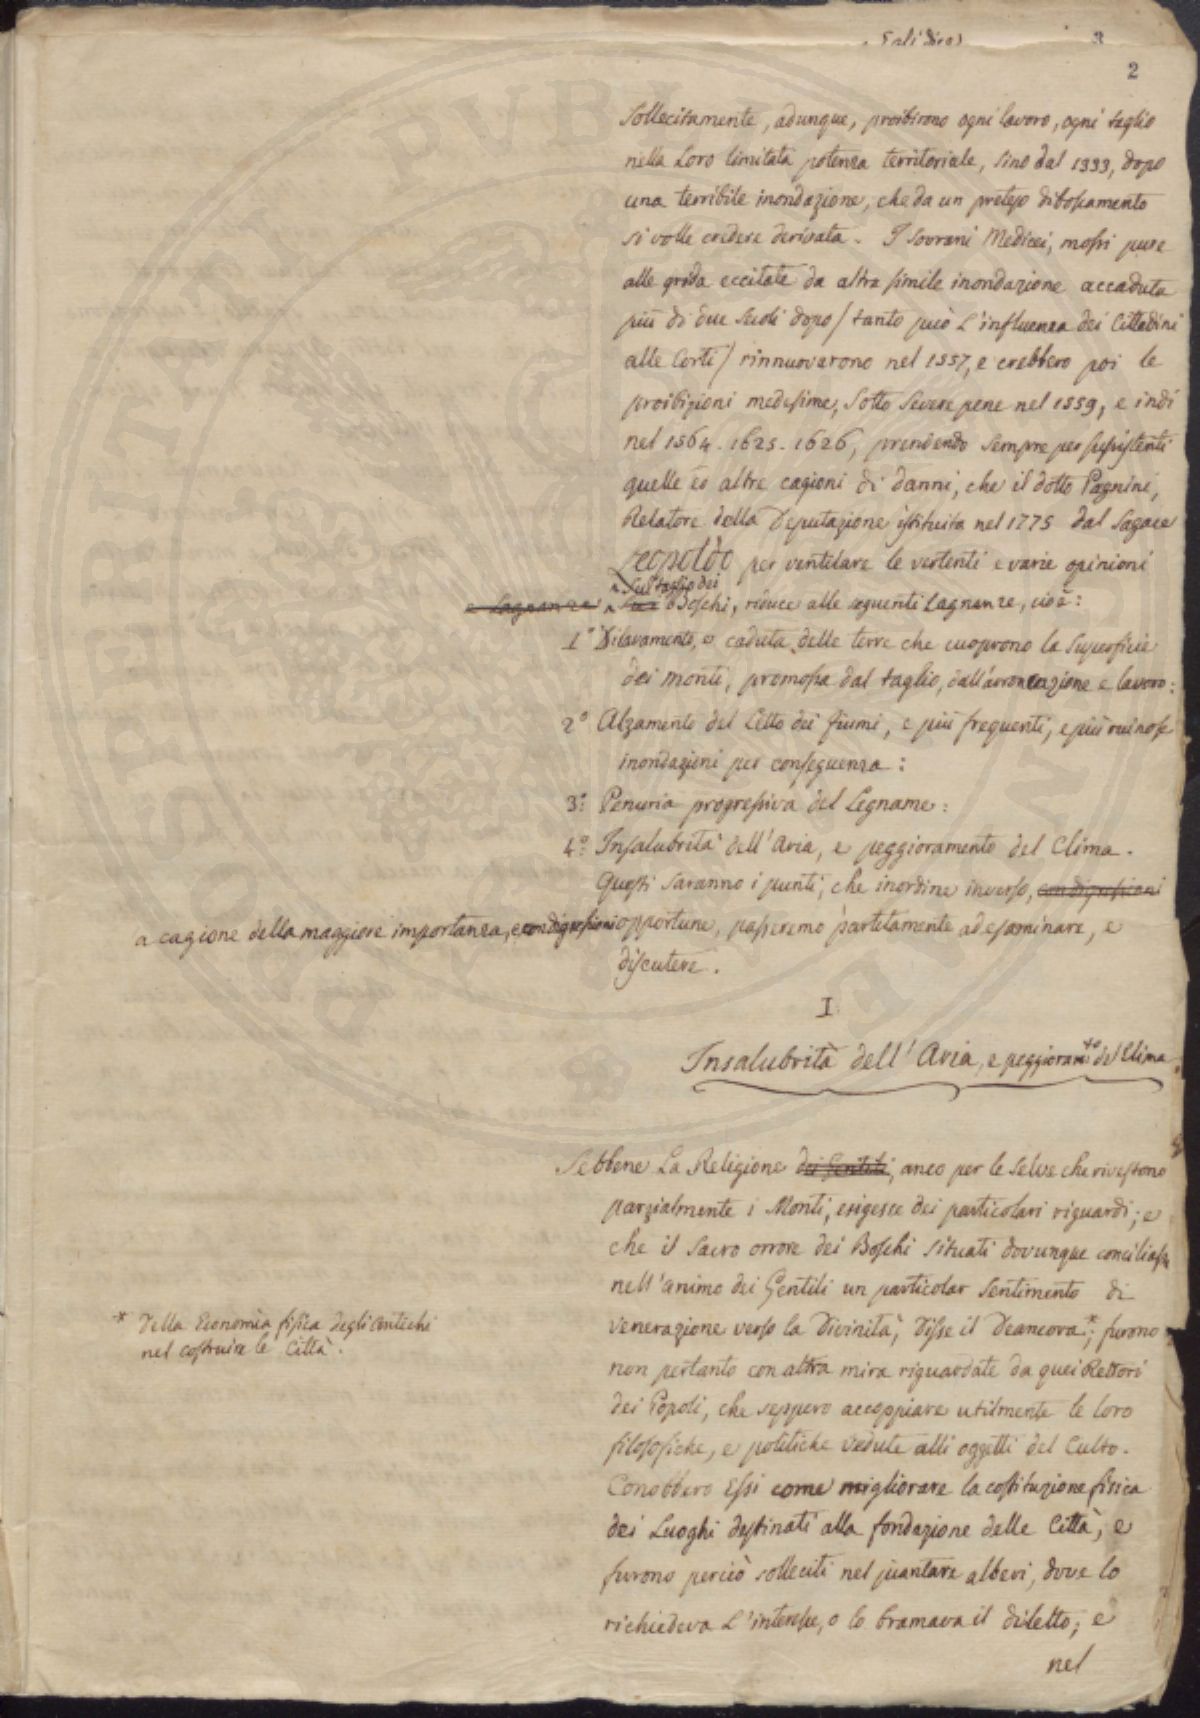 2
Sollecitamente, adunque, proibirono ogni lavoro, ogni taglio
nella Loro limitata potenza territoriale, sino dal 1333, dopo
una terribile inondazione, che da un preteso diboscamento
si volle credere derivata. I Sovrani Medicei, mossi pure
alle grida eccitate da altra simile inondazione accaduta
più di due secoli dopo / tanto può L'influenza dei Cittadini
alle Corti / rinnuovarono nel 1557, e crebbero poi le
proibizioni medesime, Sotto Severe pene nel 1559, e indi
nel 1564. 1625. 1626, prendendo sempre per sussistenti
quelle ed altre cagioni di danni, che il dotto Pagnini,
Relatore della Deputazione istituita nel 1775 dal Sagace
Leopoldo per ventilare le vertenti e varie opinioni
sul taglio dei
e Lagnanze sui Boschi, riduce alle seguenti Lagnanze, cioè:
1° Dilavamento, o caduta delle terre che cuoprono la Superficie
dei monti, promossa dal taglio, dall'arroncazione e lavoro:
2° Alzamento del Letto dei fiumi, e più frequenti, e più ruinose
inondazioni per conseguenza:
3° Penuria progressiva del Legname:
4° Insalubrità dell'Aria, e peggioramento del Clima.
Questi saranno i punti, che inordine inverso, con digressioni
a cagione della maggiore importanza, e con digressioni opportune, passeremo partitamente ad esaminare, e
discutere.
I
Insalubrità dell'Aria, e peggioram.to del Clima
Sebbene La Religione dei Gentili, anco per le Selve che rivestono
parzialmente i Monti, esigesse dei particolari riguardi; e
che il Sacro orrore dei Boschi situati dovunque conciliasse
nell'animo dei Gentili un particolar Sentimento di
venerazione verso la Divinità, Disse il Deancora*; furono
* Della Economia fisica degli Antichi
nel costruire le Città.
non pertanto con altra mira riguardate da quei Rettori
dei Popoli, che seppero accoppiare utilmente le loro
filosofiche, e politiche vedute alli oggetti del Culto.
Conobbero Essi come migliorare la costituzione fisica
dei Luoghi destinati alla fondazione delle Città, e
furono perciò solleciti nel piantare alberi, dove lo
richiedeva L'interesse, o lo bramava il diletto; e
nel